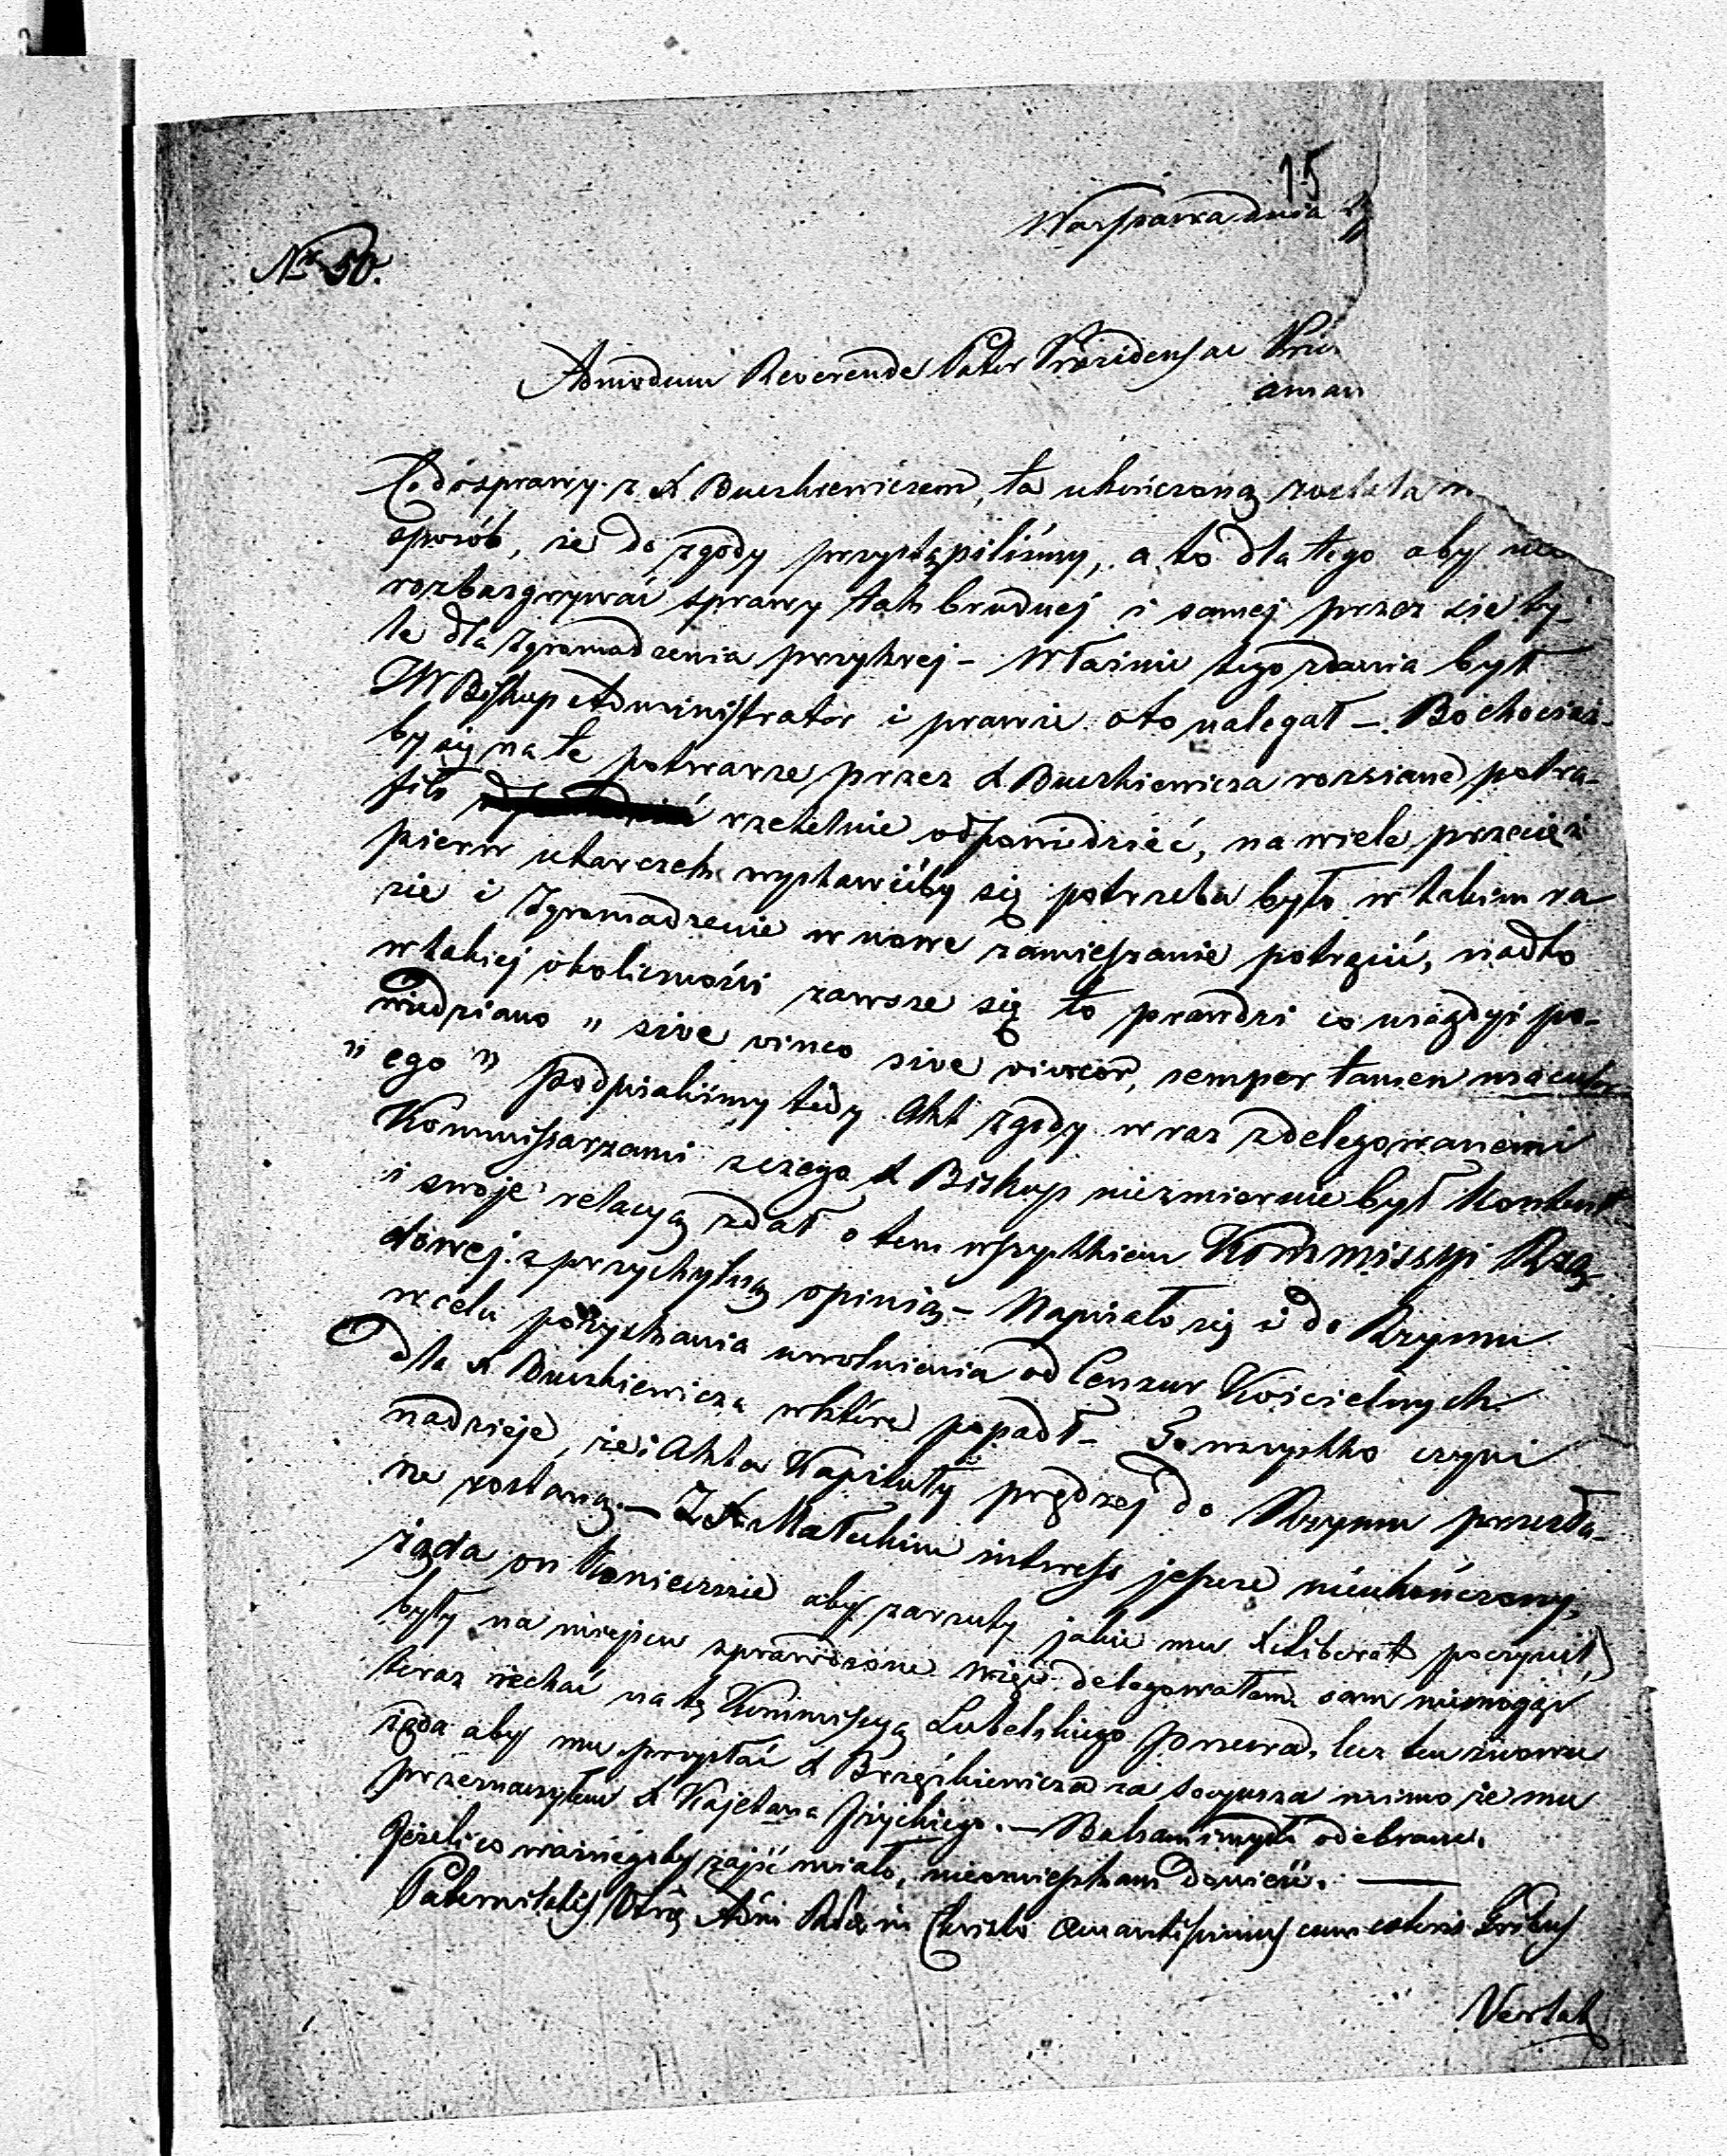 15
Warszawa dnia
Nro 50.
Admodum Reverende Pater Präsidens ac
aman
Co do sprawy z X Buszkiewiczem, ta ukończoną została
sposób, że do zgody przystąpiliśmy, a to dla tego aby nie
rozbazgrywać sprawy tak brudnej i samej przez się ty-
le dla Zgromadzenia przykrej – Właśnie tego zdania był
JW Biskup Administrator i prawie oto nalegał – Bo chociaż-
by się na te potwarze przez X Buszkiewicza rozsiane, potra-
fiło rzetelnie odpowiedzieć, na wiele przecież
pierw utarczek wystawićby się potrzeba było w takim ra
zie i Zgromadzenie w nowe zamieszanie potrącić, nadto
w takiej okoliczności zawsze się to prawdzi co niegdyś po-
wiedziano „ sive vinco sive vincor, semper tamen maculor
„ ego „ Podpisaliśmy tedy Akt zgody wraz z delegowanemi
Kommissarzami z czego X Biskup niezmiernie był kontent
i swoje relacyą zdał o tem wszystkiem Kommissyi Rzą-
dowej z przychylną opinią – Napisało się i do Rzymu
w celu pozyskania uwolnienia od Cenzur Kościelnych
dla X Buszkiewicza w które popadł – To wszystko czyni
nadzieje, że i Akta Kapituły prędzej do Rzymu przesła-
ne zostaną. – Z X Małeckim interess jeszcze nieukończony,
żąda on koniecznie aby zarzuty jakie mu X Liberat poczynił,
były na miejscu sprawdzone więc delegowałem sam niemogąc
teraz jechać na tę Kommissyą Lubelskiego Prezesa, lecz ten znowu
żąda aby mu przysłać X Brzęskiewicza za socyusza mimo że mu
przeznaczyłem X Kajetana . – Balsamimy odebrane.
Jeżeli co ważniejszego zajść miało, nieomieszkam donieść. —
Paternitatis Vtrae Adm Rdae in Christo amantissimus cum ceteris
Vertat